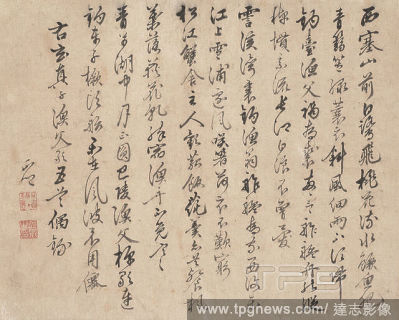 西塞山前白鷺飛桃花流水鱖魚肥
青箬笠綠蓑衣斜風細雨不須歸
釣臺漁父褐為裘兩兩三三舴艋舟能縱
棹慣乘流長江白浪不曾憂
霅溪灣裏釣漁翁舴艋為家西復東
江上雪浦邊風笑著荷衣不歎窮
松江蟹舍主人歡菰飯蓴羹亦共餐楓
葉落荻花乾醉宿漁舟不覺寒
青草湖中月正圓巴陵漁父棹歌連
釣車子橛頭船樂在風波不用仙
右玄真子漁父歌五首偶錄
TPG
tpgimages.com © 達志影像